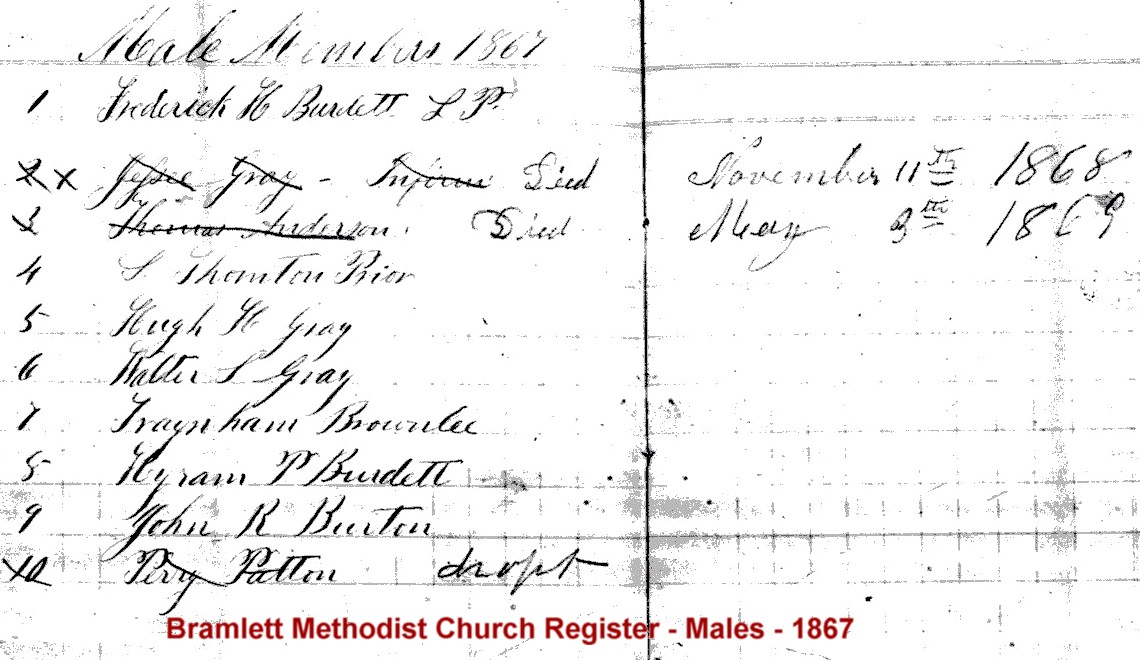 Male Members 1867
1 Frederick H Burdett L P
2 x Jessee Gray - Died November 11th 1868
3 Thomas Anderson. Died May 3th 1869
4 S Thornton Prior
5 Hugh H Gray
6 Walter S Gray
7 Traynham Brownlee
8 Hyram P Burdett
9 John R Burton
10 Perry Patton dropt
Bramlett Methodist Church Register - Males - 1867